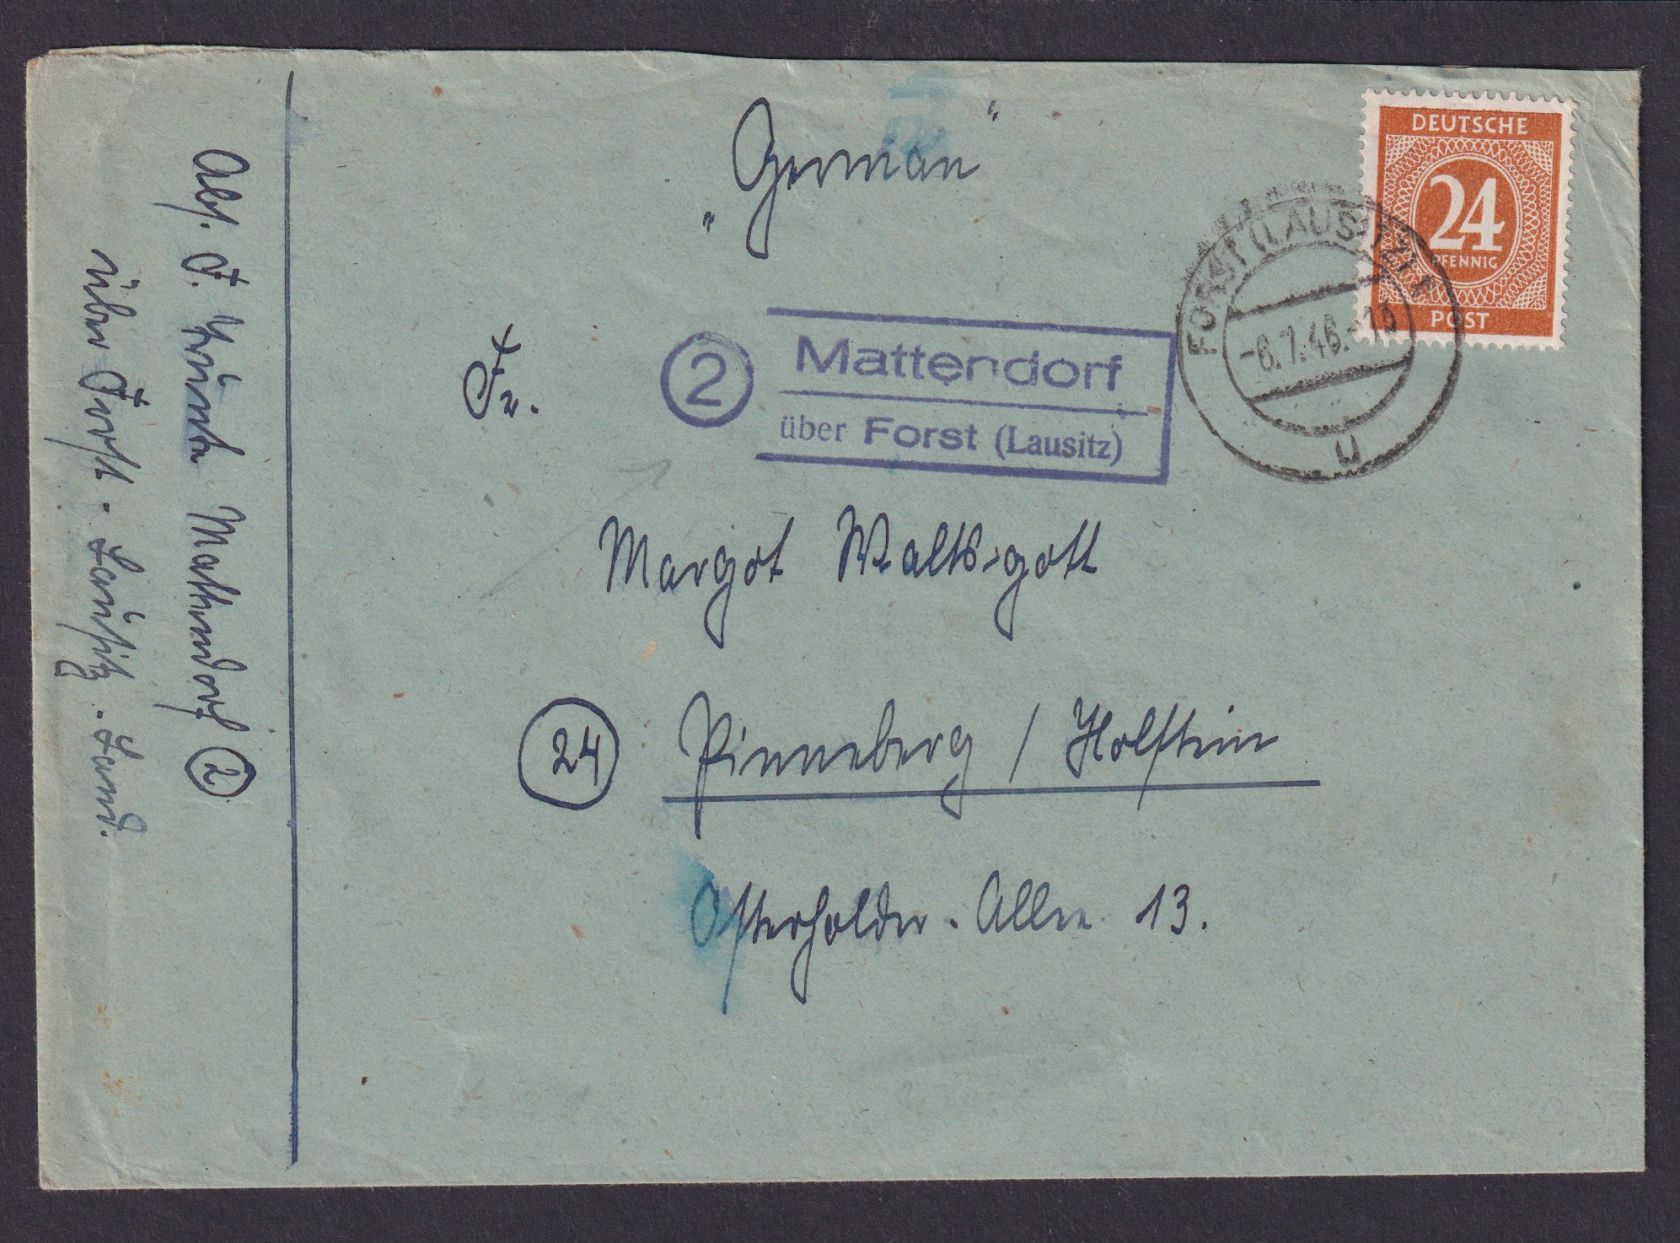 „German“
DEUTSCHE
24
PFENNIG
POST
FORST (LAUSITZ) 1
-6.7.46.-13
u
2
Mattendorf
über Forst (Lausitz)
Fr.
Margot Waltsgott
24 Pinneberg / Holstein
Osterholder-Allee 13.
Abs. F. Mattendorf 2
über Forst-Lausitz-Land.